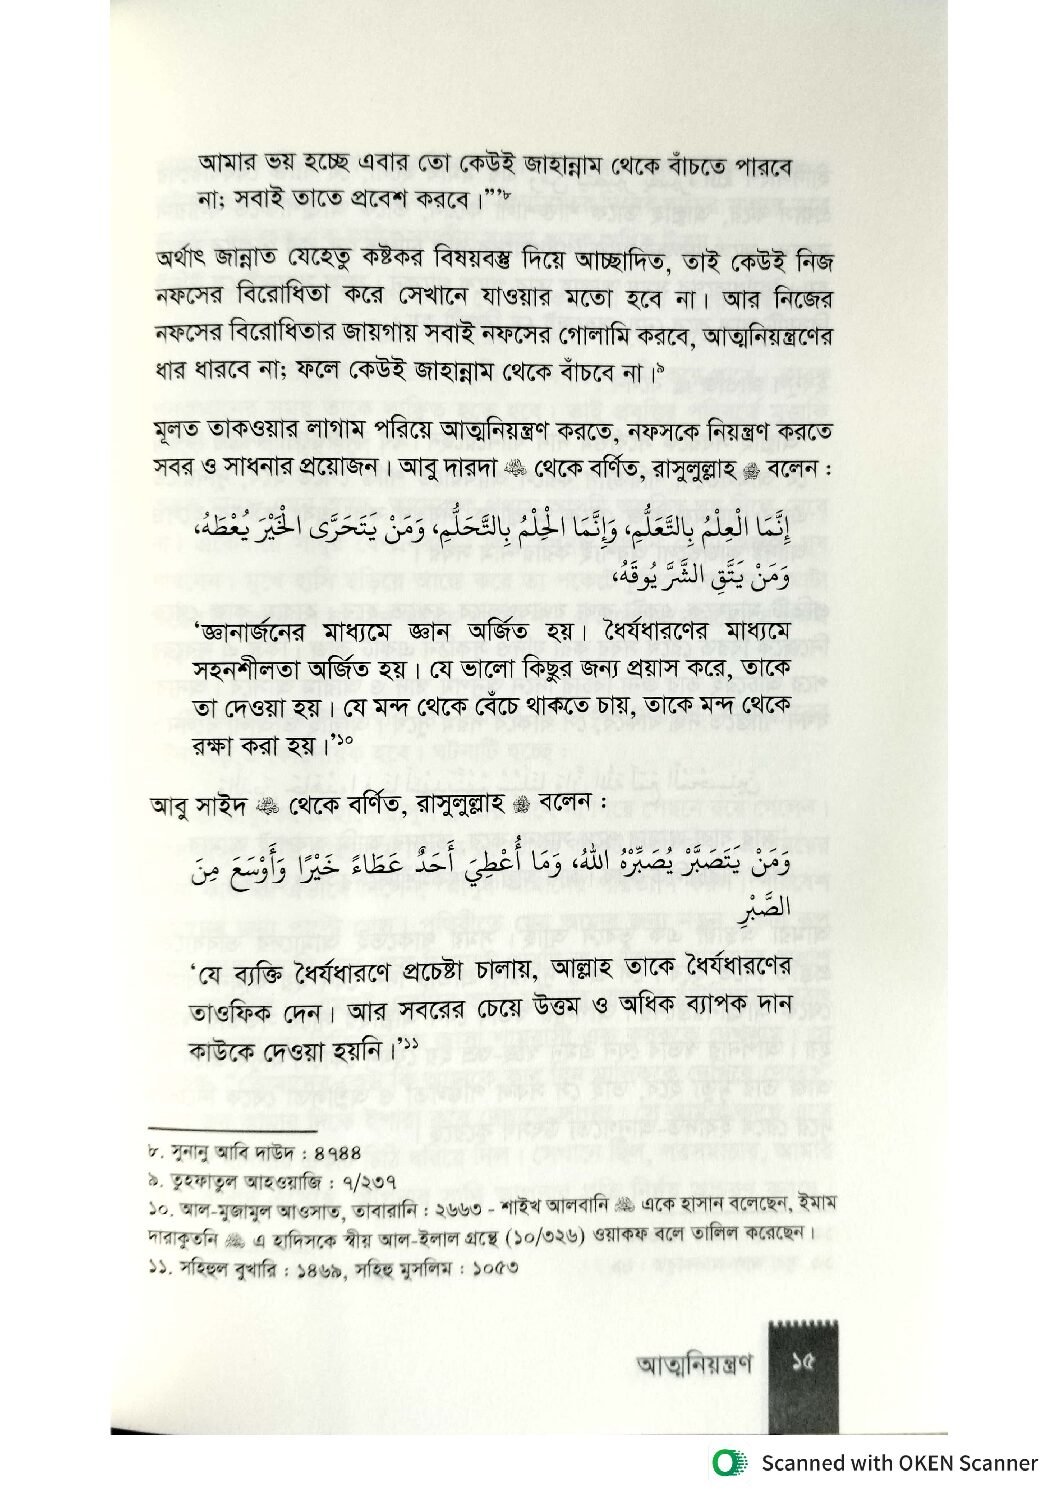 আমার ভয় হচ্ছে এবার তো কেউই জাহান্নাম থেকে বাঁচতে পারবে
না; সবাই তাতে প্রবেশ করবে।”’৮
অর্থাৎ জান্নাত যেহেতু কষ্টকর বিষয়বস্তু দিয়ে আচ্ছাদিত, তাই কেউই নিজ
নফসের বিরোধিতা করে সেখানে যাওয়ার মতো হবে না। আর নিজের
নফসের বিরোধিতার জায়গায় সবাই নফসের গোলামি করবে, আত্মনিয়ন্ত্রণের
ধার ধারবে না; ফলে কেউই জাহান্নাম থেকে বাঁচবে না।৯
মূলত তাকওয়ার লাগাম পরিয়ে আত্মনিয়ন্ত্রণ করতে, নফসকে নিয়ন্ত্রণ করতে
সবর ও সাধনার প্রয়োজন। আবু দারদা থেকে বর্ণিত, রাসুলুল্লাহ ﷺ বলেন :
إِنَّمَا الْعِلْمُ بِالتَّعَلُّمِ، وَإِنَّمَا الْحِلْمُ بِالتَّحَلُّمِ، وَمَنْ يَتَحَرَّى الْخَيْرَ يُعْطَهُ،
وَمَنْ يَتَّقِ الشَّرَّ يُوقَهُ،
‘জ্ঞানার্জনের মাধ্যমে জ্ঞান অর্জিত হয়। ধৈর্যধারণের মাধ্যমে
সহনশীলতা অর্জিত হয়। যে ভালো কিছুর জন্য প্রয়াস করে, তাকে
তা দেওয়া হয়। যে মন্দ থেকে বেঁচে থাকতে চায়, তাকে মন্দ থেকে
রক্ষা করা হয়।’১০
আবু সাইদ থেকে বর্ণিত, রাসুলুল্লাহ ﷺ বলেন :
وَمَنْ يَتَصَبَّرْ يُصَبِّرْهُ اللهُ، وَمَا أُعْطِيَ أَحَدٌ عَطَاءً خَيْرًا وَأَوْسَعَ مِنَ
الصَّبْرِ
‘যে ব্যক্তি ধৈর্যধারণে প্রচেষ্টা চালায়, আল্লাহ তাকে ধৈর্যধারণের
তাওফিক দেন। আর সবরের চেয়ে উত্তম ও অধিক ব্যাপক দান
কাউকে দেওয়া হয়নি।’১১
৮. সুনানু আবি দাউদ : ৪৭৪৪
৯. তুহফাতুল আহওয়াজি : ৭/২৩৭
১০. আল-মুজামুল আওসাত, তাবারানি : ২৬৬৩ - শাইখ আলবানি একে হাসান বলেছেন, ইমাম
দারাকুতনি এ হাদিসকে স্বীয় আল-ইলাল গ্রন্থে (১০/৩২৬) ওয়াকফ বলে তালিল করেছেন।
১১. সহিহুল বুখারি : ১৪৬৯, সহিহু মুসলিম : ১০৫৩
আত্মনিয়ন্ত্রণ ১৫
Scanned with OKEN Scanner